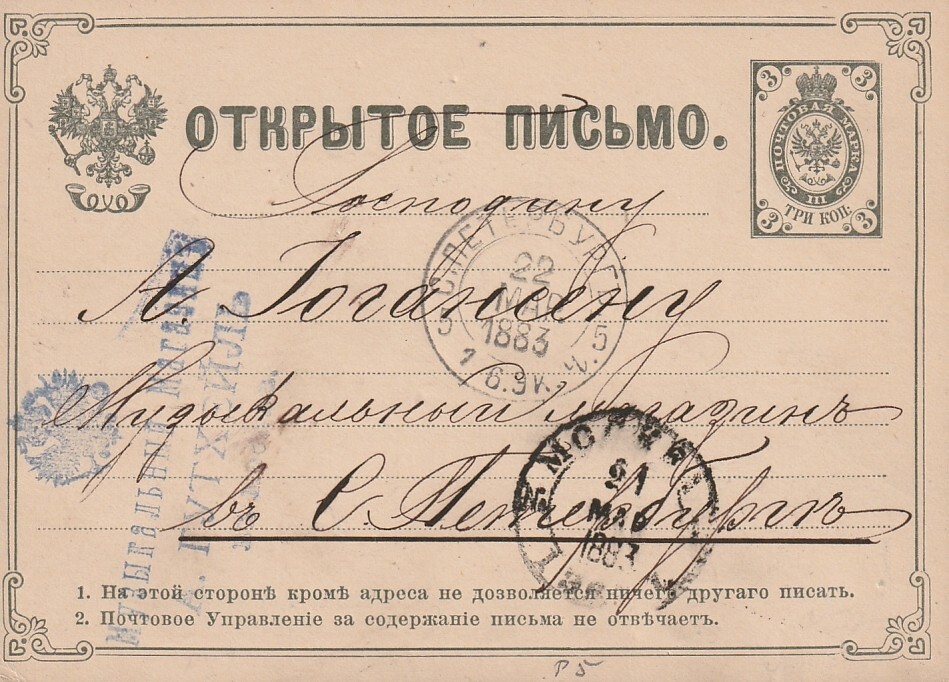 ОТКРЫТОЕ ПИСЬМО.
3 3
ПОЧТОВАЯ МАРКА
III
ТРИ КОП.
3 3
Господину
А. Іогансену
Музыкальный магазинъ
въ С. Петербургѣ
С.ПЕТЕРБУРГЪ
22
МАР.
1883
5 5
1 6.Э К.
МОСКВА
21
МАР
1883
МУЗЫКАЛЬНЫЙ МАГАЗИНЪ
А. ГУТХЕЙЛЬ
1. На этой сторонѣ кромѣ адреса не дозволяется ничего другаго писать.
2. Почтовое Управленіе за содержаніе письма не отвѣчаетъ.
P 5